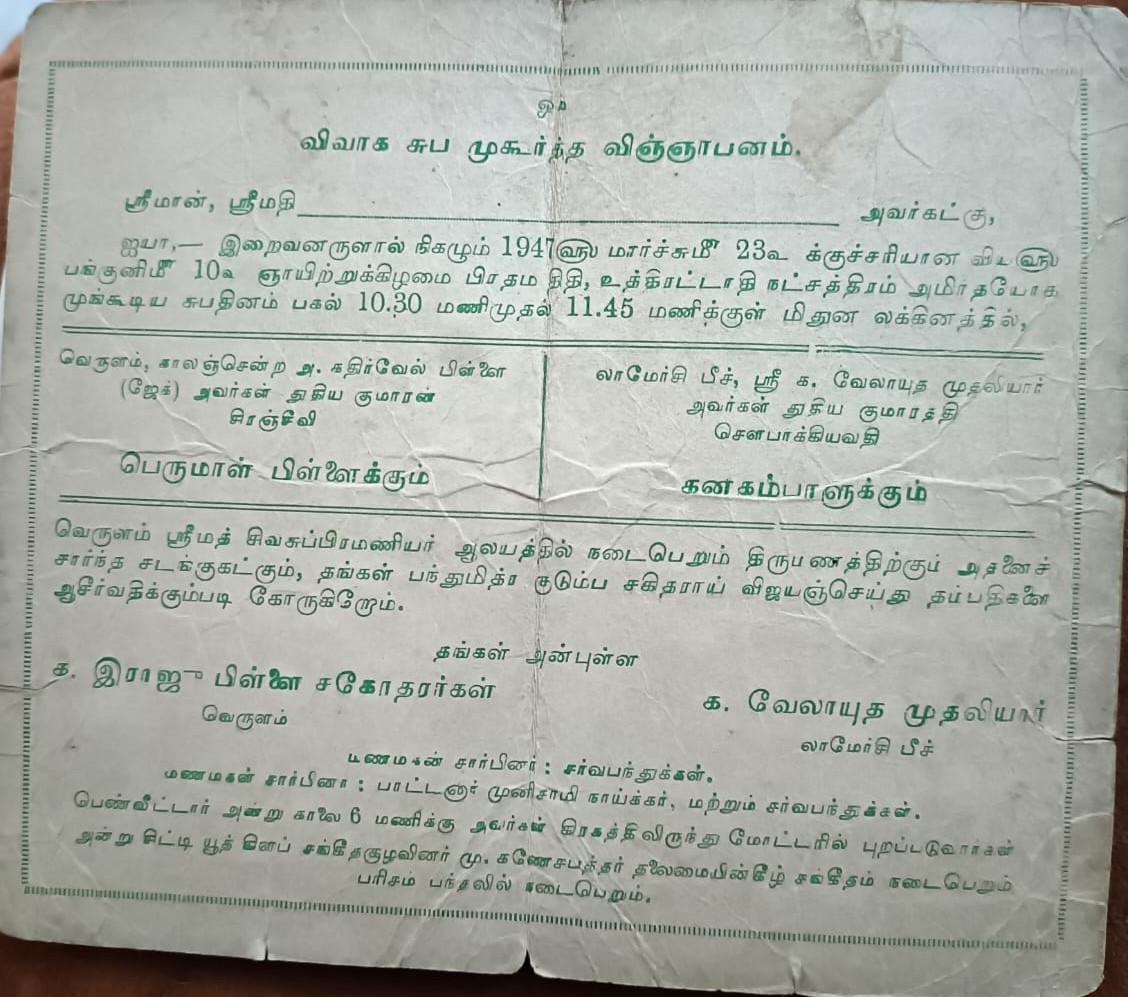 ஓம்
விவாக சுப முகூர்த்த விஞ்ஞாபனம்.
ஸ்ரீமான், ஸ்ரீமதி அவர்கட்கு,
ஐயா,— இறைவனருளால் நிகழும் 1947௵ மார்ச்சுமீ 23௳ க்குச்சரியான விய௵
பங்குனிமீ 10௳ ஞாயிற்றுக்கிழமை பிரதம திதி, உத்திரட்டாதி நட்சத்திரம் அமிர்தயோக
முங்கூடிய சுபதினம் பகல் 10.30 மணிமுதல் 11.45 மணிக்குள் மிதுன லக்கினத்தில்,
வெருளம், காலஞ்சென்ற அ. கதிர்வேல் பிள்ளை
(ஜேக்) அவர்கள் துகிய குமாரன்
சிரஞ்சீவி
பெருமாள் பிள்ளைக்கும்
லாமேர்சி பீச், ஸ்ரீ க. வேலாயுத முதலியார்
அவர்கள் துகிய குமாரத்தி
சௌபாக்கியவதி
கனகம்பாளுக்கும்
வெருளம் ஸ்ரீமத் சிவசுப்பிரமணியர் ஆலயத்தில் நடைபெறும் திருமணத்திற்கும் அதனைச்
சார்ந்த சடங்குகட்கும், தங்கள் பந்துமித்ர குடும்ப சகிதராய் விஜயஞ்செய்து தம்பதிகளை
ஆசீர்வதிக்கும்படி கோருகிறோம்.
தங்கள் அன்புள்ள
க. இராஜு பிள்ளை சகோதரர்கள்
வெருளம்
க. வேலாயுத முதலியார்
லாமேர்சி பீச்
மணமகன் சார்பினர் : சர்வபந்துக்கள்.
மணமகள் சார்பினர் : பாட்டனார் முனிசாமி நாய்க்கர், மற்றும் சர்வபந்துக்கள்.
பெண்வீட்டார் அன்று காலை 6 மணிக்கு அவர்கள் கிரகத்திலிருந்து மோட்டரில் புறப்படுவார்கள்
அன்று சிட்டி யூத் கிளப் சங்கீதகுழவினர் மு. கணேசபத்தர் தலைமையின்கீழ் சங்கீதம் நடைபெறும்
பரிசம் பந்தலில் நடைபெறும்.